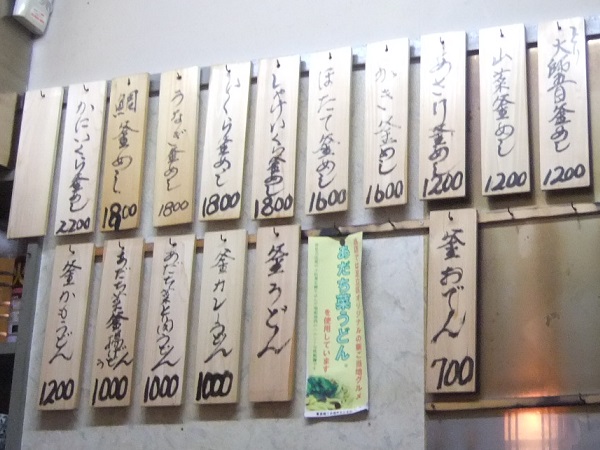 大師釜めし
1200
山菜釜めし
1200
あさり釜めし
1200
かき釜めし
1600
ほたて釜めし
1600
しゃけいくら釜めし
1800
いくら釜めし
1800
うなぎ釜めし
1800
鯛釜めし
1800
かにいくら釜めし
2200
釜おでん
700
あだち菜うどん
を使用しています
釜うどん
釜カレーうどん
1000
あだち菜肉うどん
1000
あだち菜釜揚うどん
1000
釜かもうどん
1200